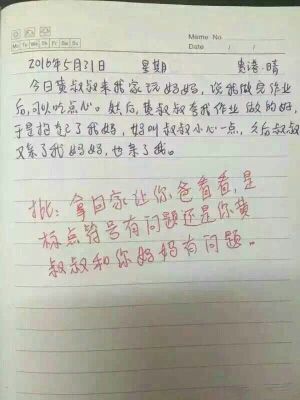 Mo Tu We Th Fr Sa Su
Memo No.
Date / /
2016年5月31日 星期 贵港·晴
今日黄叔叔来我家玩妈妈，说我做完作业
后，可以吃点心。然后，黄叔叔夸我作业做的好，
于是抱起了我妈，妈叫叔叔小心一点，之后叔叔
又亲了我妈妈，也亲了我。
批：拿回家让你爸看看，是
标点符号有问题还是你黄
叔叔和你妈妈有问题。